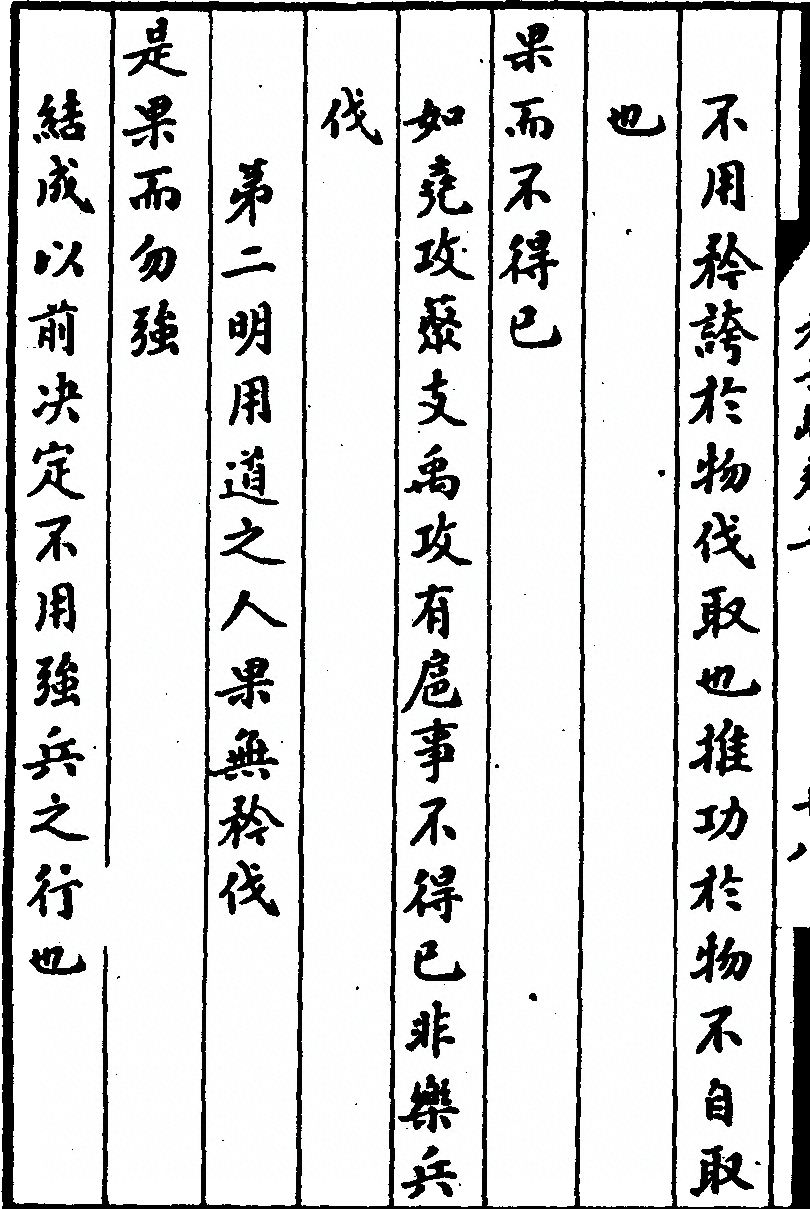 不用矜誇於物伐取也推功於物不自取
也
果而不得已
如堯攻藂支禹攻有扈事不得已非樂兵
伐
第二明用道之人果無矜伐
是果而勿強
結成以前决定不用強兵之行也